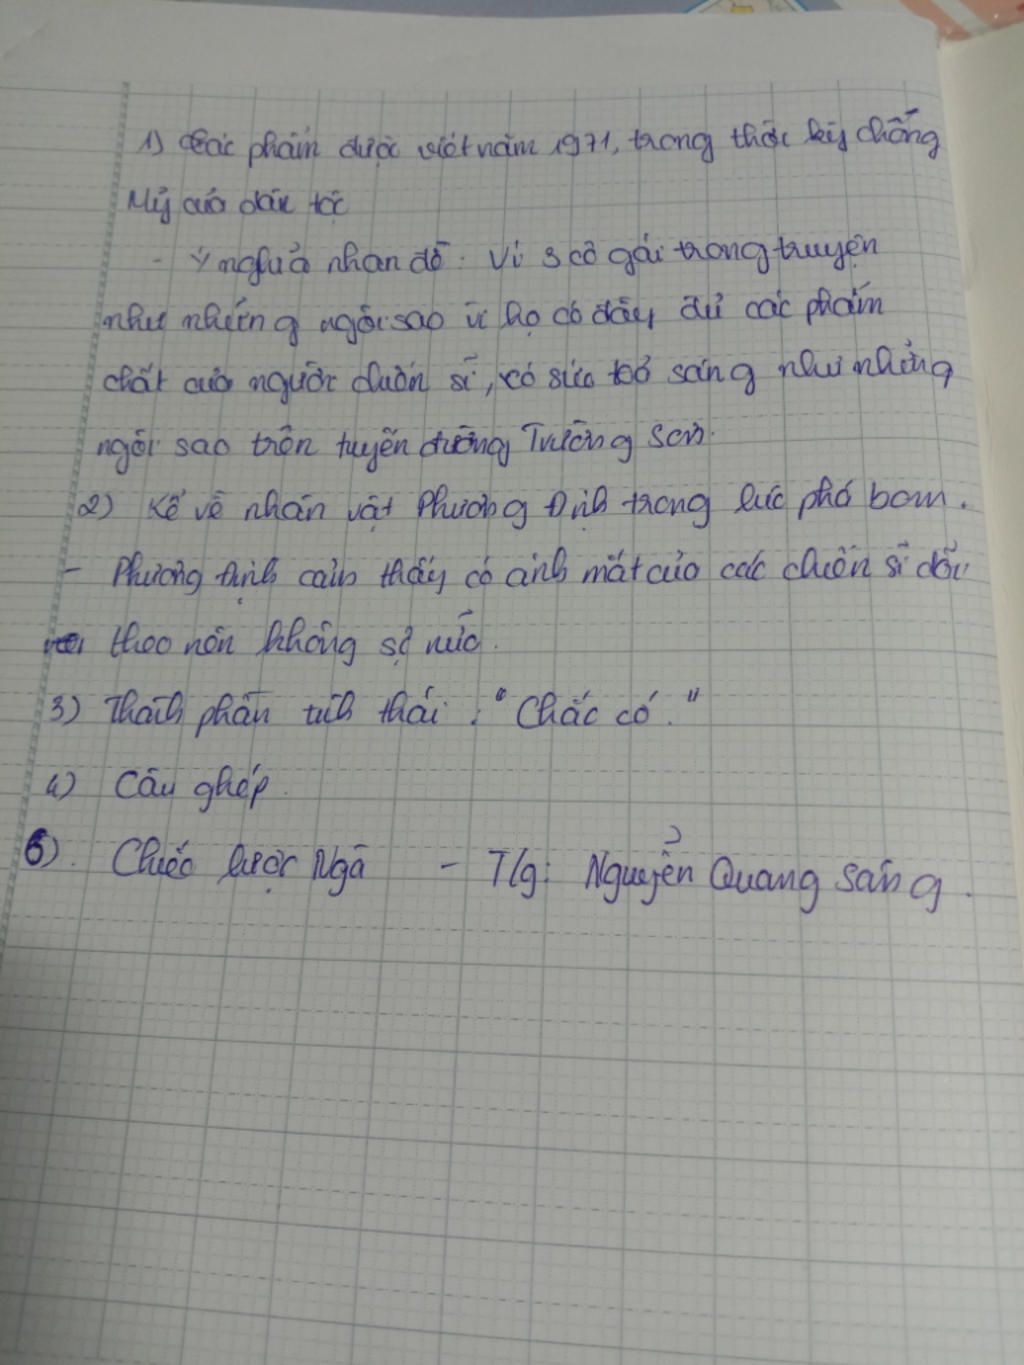 1) Tác phẩm được viết năm 1971, trong thời kỳ chống
Mỹ của dân tộc
- Ý nghĩa nhan đề: Vì 3 cô gái trong truyện
như những ngôi sao vì họ có đầy đủ các phẩm
chất của người chiến sĩ, có sức toả sáng như những
ngôi sao trên tuyến đường Trường Sơn.
2) Kể về nhân vật Phương Định trong lúc phá bom.
- Phương Định cảm thấy có ánh mắt của các chiến sĩ dõi
theo nên không sợ nữa.
3) Thành phần tình thái: "Chắc có."
4) Câu ghép.
5). Chiếc lược Ngà - T/g: Nguyễn Quang Sáng.